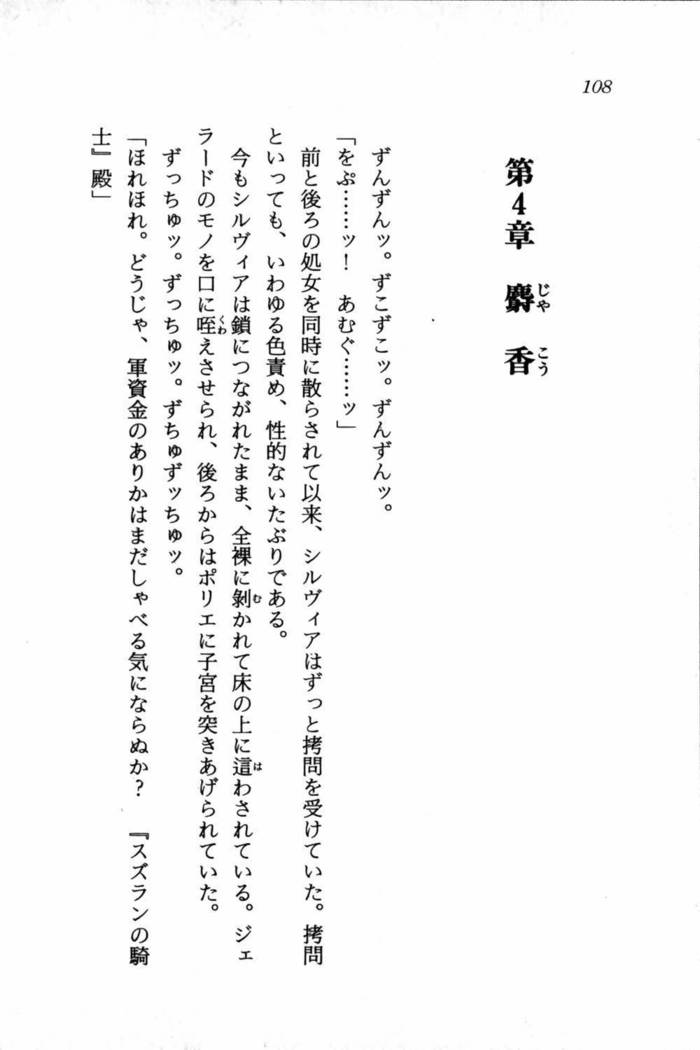 108
第4章　麝香
じゃ　こう
ずんずんッ。ずこずこッ。ずんずんッ。
「をぷ……ッ！　あむぐ……ッ」
前と後ろの処女を同時に散らされて以来、シルヴィアはずっと拷問を受けていた。拷問
といっても、いわゆる色責め、性的ないたぶりである。
今もシルヴィアは鎖につながれたまま、全裸に剝かれて床の上に這わされている。ジェ
ラードのモノを口に咥えさせられ、後ろからはポリエに子宮を突きあげられていた。
ずっちゅッ。ずっちゅッ。ずちゅずッちゅッ。
「ほれほれ。どうじゃ、軍資金のありかはまだしゃべる気にならぬか？　『スズランの騎
士』殿」